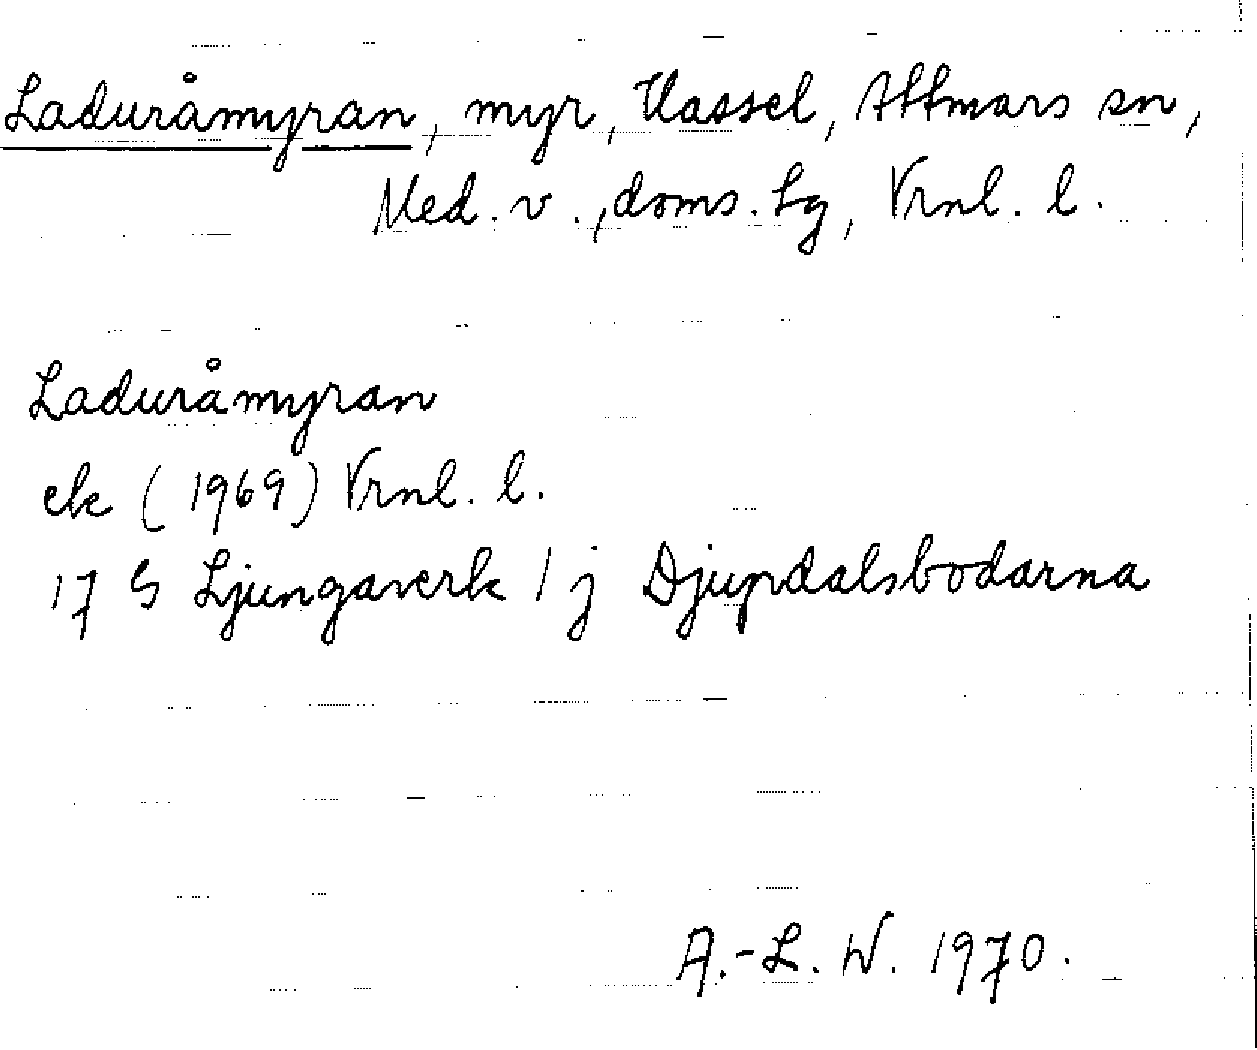 Laduråmyran, myr, Vassel, Attmars sn,
Med. v., doms. lg, Vrnl. l.
Laduråmyran
ek (1969) Vrnl. l.
17 G Ljungaverk 1 j Djupdalsbodarna
A.-L. W. 1970.